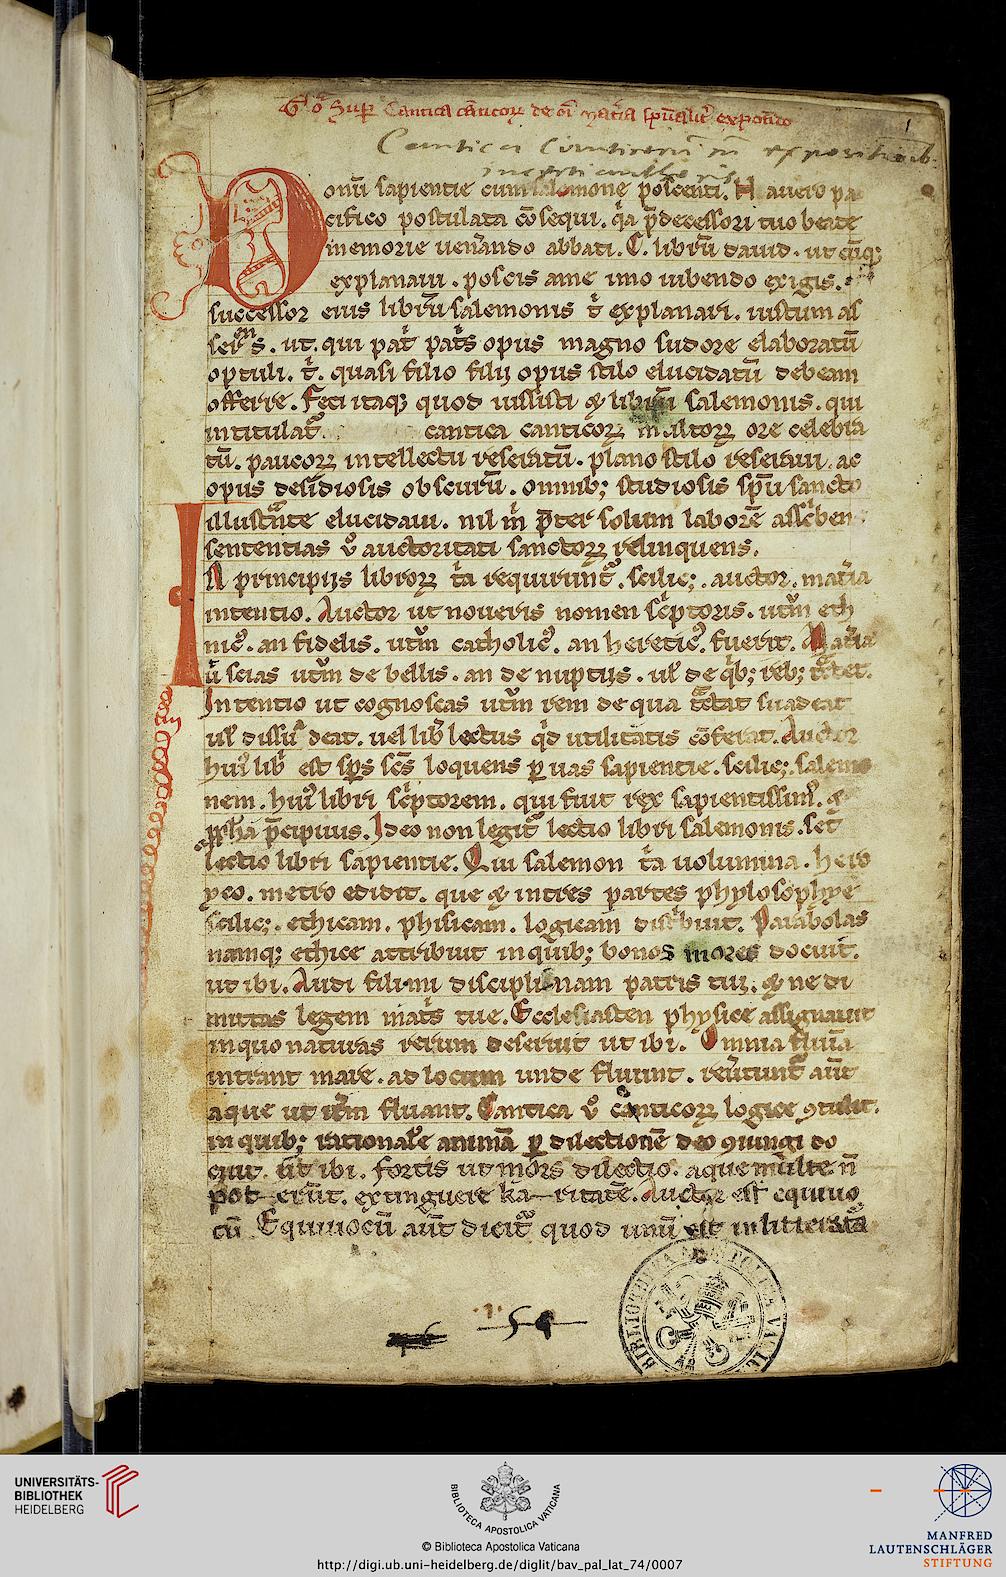 Super Cantica canticoꝝ de
1
Cantica Canticorū
Donū sapientie cum salomone poscenti. H auero pa
cifico postulata cōsequi. q̇a p̄decessori tuo beate
memorie uenerando abbati. C. librū dauid. ut cūq;
explanaui. poscis a me imo iubendo exigis.
successor eius librū salemonis t̄ explanari. iustum as
serens. ut. qui pat̄ pat̄s opus magno sudore elaboratū
optuli. t̄. quasi filio filij opus stilo elucidatū debeam
offerre. Feci itaq; quod iussisti & librū salemonis. qui
intitulat᷑ cantica canticoꝝ multoꝝ ore celebra
tū. paucoꝝ intellectu reseratū. plano stilo reseraui. ac
opus desidiosis obscurū. omnib; studiosis sp̄u sancto
illustrante elucidaui. nil m̄ p̄ter solum laborē asscriben
sententias ū auctoritati sanctoꝝ relinquens.
In principijs libroꝝ t̄a requirunt᷑. scilic;. auctor. mat̄ia
intentio. Auctor ut noueris nomen sc̄ptoris. utrū eth
nic᷒. an fidelis. utrū catholic᷒. an heretic᷒. fuerit. Mat̄ia
ū scias utrū de bellis. an de nuptijs. uł de q̇b; reb; tractet.
Intentio ut cognoscas utrū rem de qua tractat suadeat
uł dissuadeat. uel lib̄ lectus q̇d utilitatis cōferat. Auctor
hui᷒ lib̄ est sp̄s sc̄s loquens p̄ uas sapientie. scilic;. salemo
nem. hui᷒ libri sc̄ptorem. qui fuit rex sapientissim᷒. &
ꝓph̄a p̄cipuus. Ideo non legit᷑ lectio libri salemonis. set
lectio libri sapientie. Qui salemon t̄a uolumina. hero
yco. metro edidit. que & in tres partes phylosophye
scilic;. ethicam. phisicam. logicam distribuit. Parabolas
namq; ethice attribuit in quib; bonos mores docuit.
ut ibi. Audi fili mi disciplinam patris tui. & ne di
mittas legem mat̄s tue. Ecclesiasten physice assignauit
in quo naturas rerum deseruit ut ibi. Omnia flumina
intrant mare. ad locum unde fluunt. reu̅tunt᷑ aūt
aque ut it̄m fluant. Cantica ū canticoꝝ logice ꝯtulit.
in quib; rationalē animā p̄ dilectionē deo ꝯiungi do
cuit. ut ibi. fortis ut mors dilectio. aque multe n̄
pot erūt. extinguere ka ritatē. Auctor est equiuo
cū Equiuocū aūt dicit᷑ quod unū est in litteratura
UNIVERSITÄTS-
BIBLIOTHEK
HEIDELBERG
BIBLIOTECA APOSTOLICA VATICANA
© Biblioteca Apostolica Vaticana
http://digi.ub.uni-heidelberg.de/diglit/bav_pal_lat_74/0007
MANFRED
LAUTENSCHLÄGER
STIFTUNG